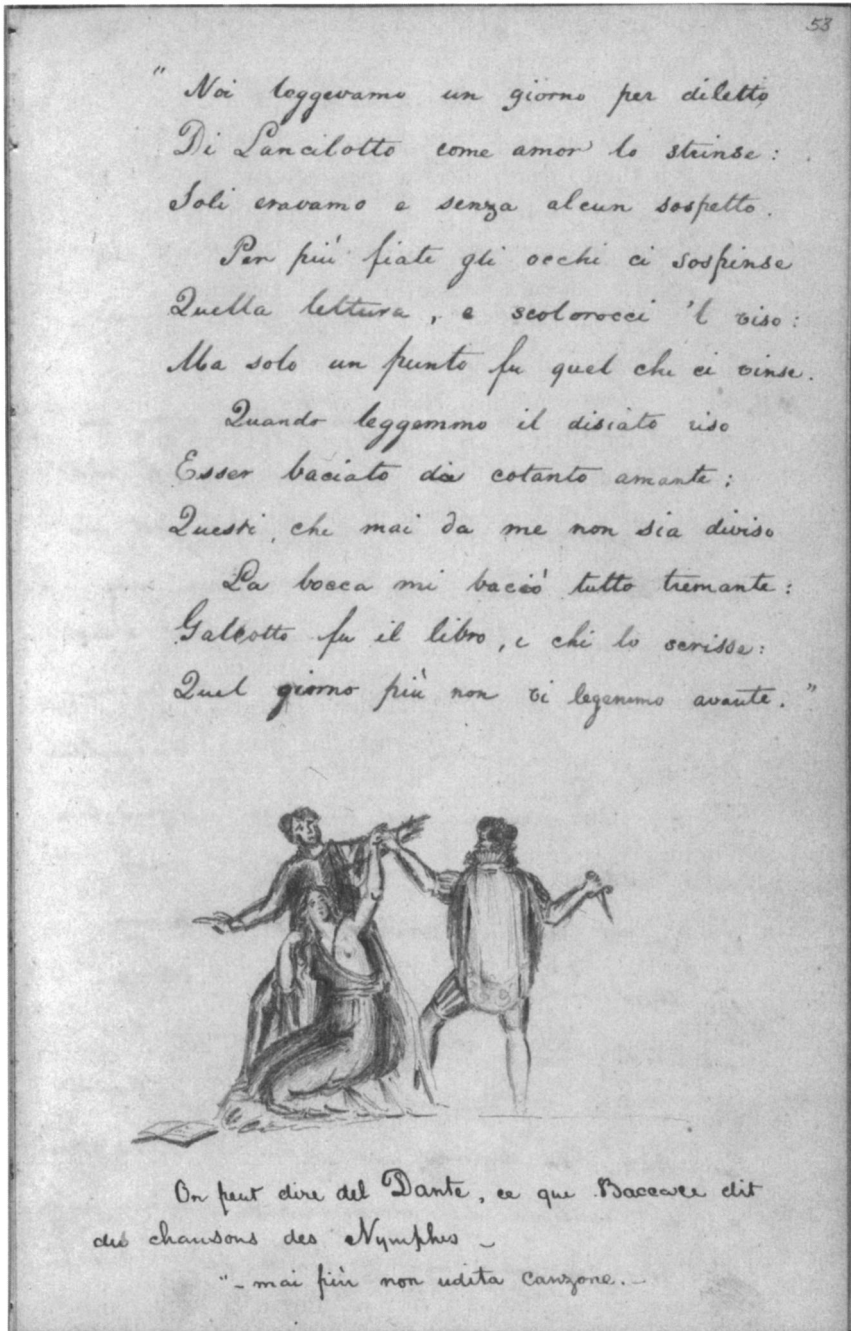 53
" Noi leggevamo un giorno per diletto
Di Lancilotto come amor lo strinse :
Soli eravamo e senza alcun sospetto.
Per più fiate gli occhi ci sospinse
Quella lettura, e scolorocci 'l viso :
Ma solo un punto fu quel che ci vinse.
Quando leggemmo il disiato riso
Esser baciato da cotanto amante ;
Questi, che mai da me non sia diviso
La bocca mi baciò tutto tremante :
Galeotto fu il libro, e chi lo scrisse :
Quel giorno più non vi legemmo avante. "
On peut dire del Dante, ce que Baccace dit
des chansons des Nymphes –
" – mai più non udita canzone. –